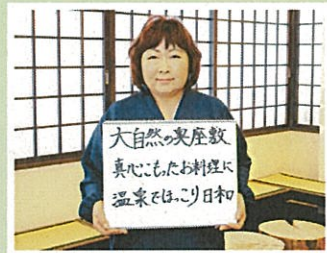 大自然の奥座敷
真心こもったお料理に
温泉でほっこり日和